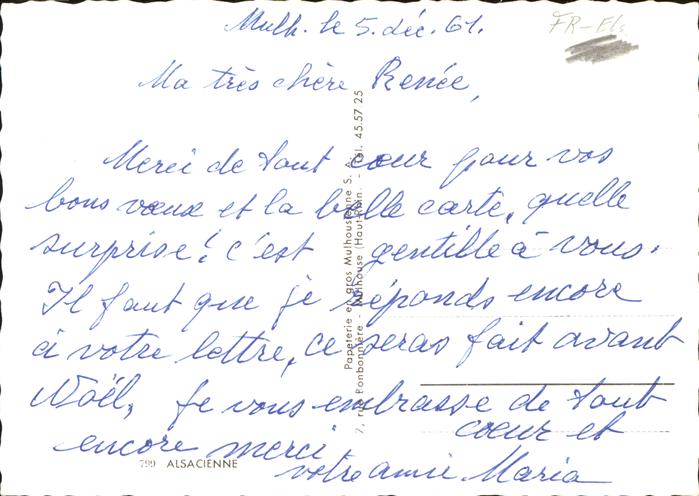 Mulh. le 5. déc. 61.
FR-Els
Ma très chère Renée,
Merci de tout cœur pour vos
bons vœux et la belle carte, quelle
surprise! c'est gentille à vous.
Il faut que je réponds encore
à votre lettre, ce seras fait avant
Noël, je vous embrasse de tout
cœur et
encore merci
votre amie Maria
799 ALSACIENNE
Papeterie en gros Mulhousienne S. A.
7, rue Bonbonnière - Mulhouse (Haut-Rhin) - Tél. 45.57 25